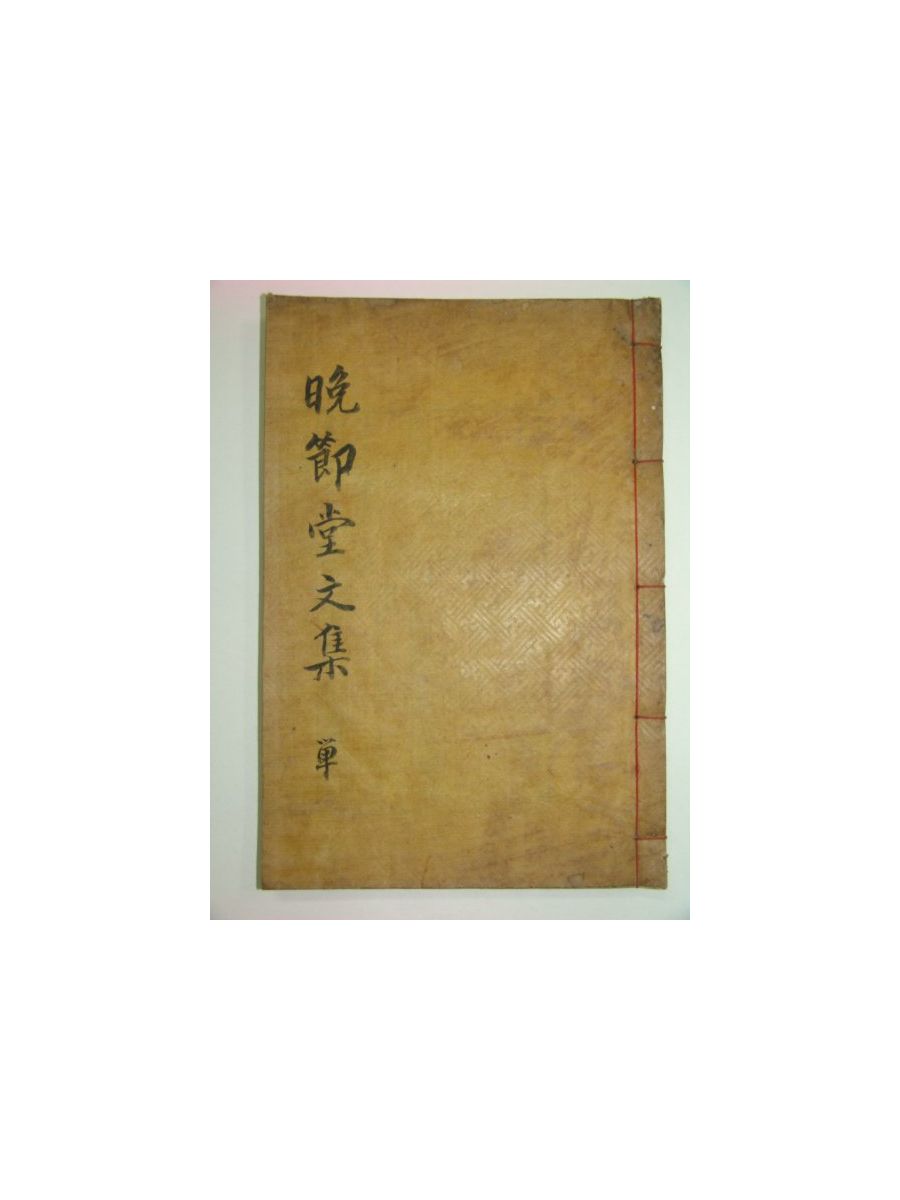 晚節堂文集 單